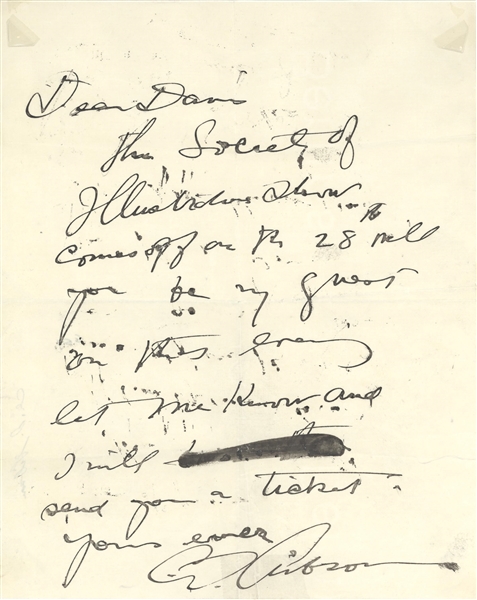 Dear Davis
The Society of
Illustrators show
comes off on the 28th will
you be my guest
on this eveng
let me know and
I will
send you a ticket
yours ever
C. D. Gibson